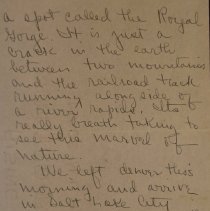 a spot called the Royal
Gorge. It is just a
crack in the earth
between two mountains
and the railroad track
running along side of
a river rapids. Its
really breath taking to
see this marvel of
nature.
We left denver this
morning and arrive
in Salt Lake City